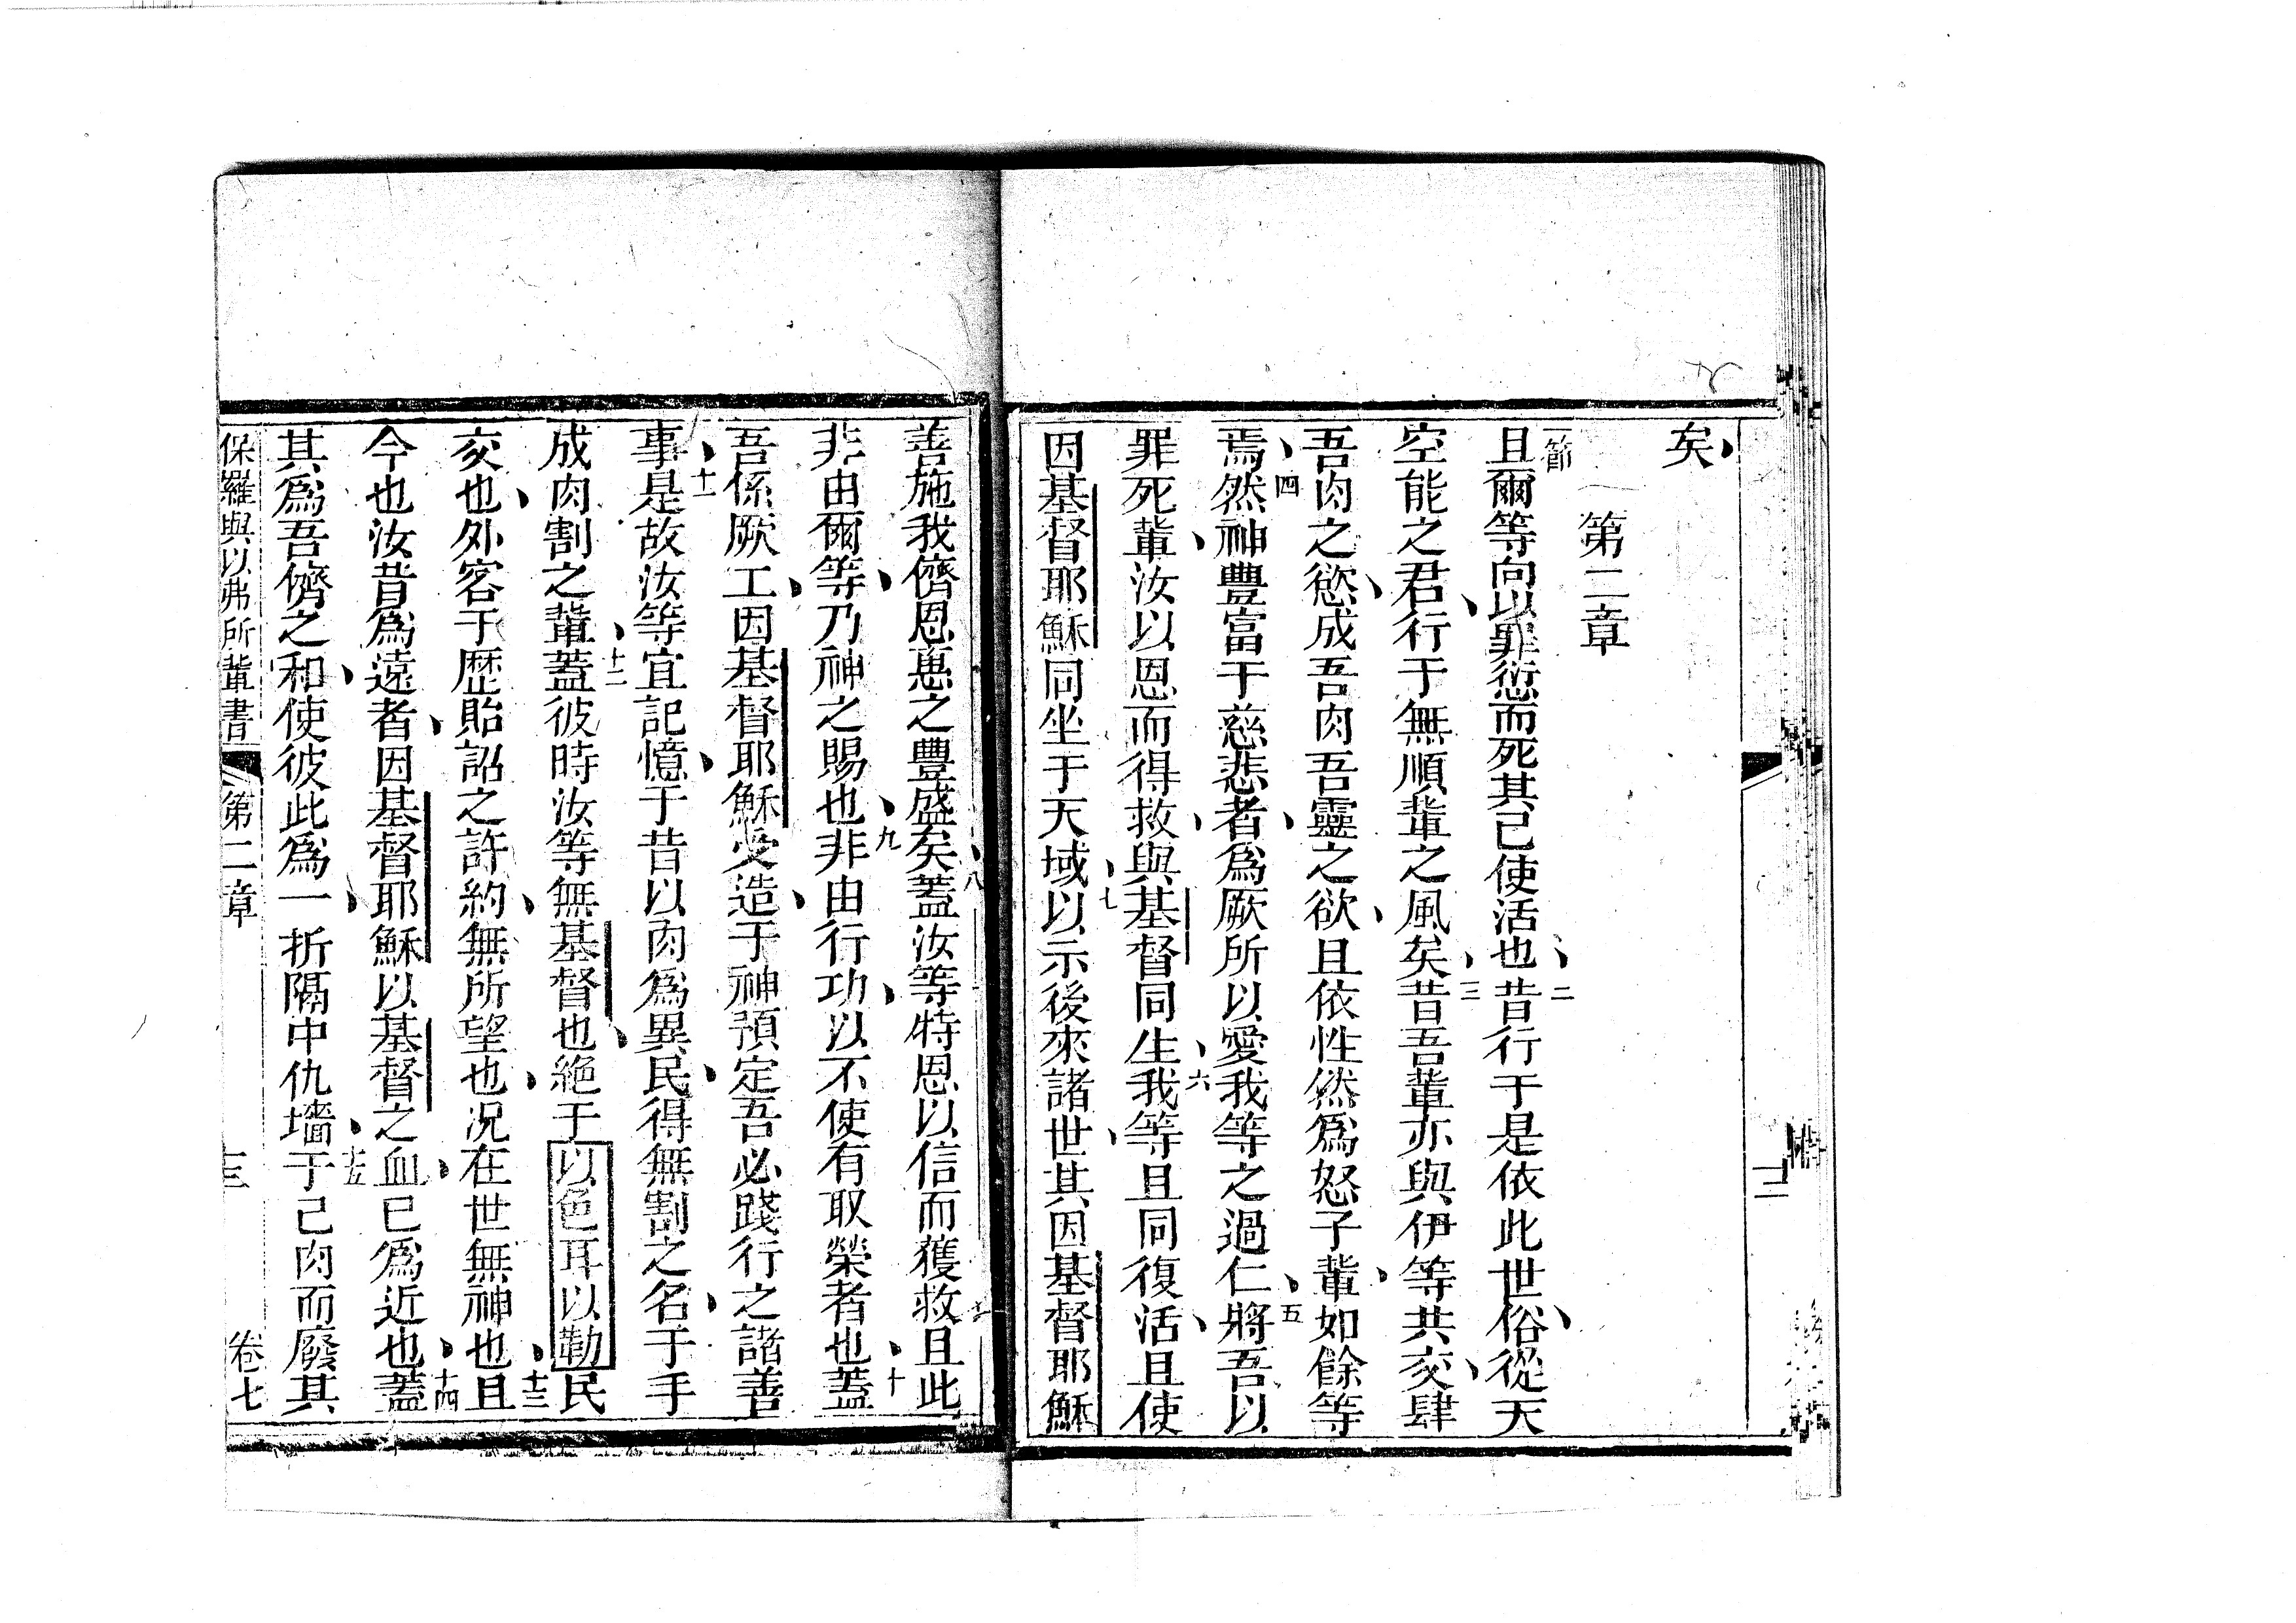 矣、
第二章
一節且爾等向以罪愆而死其已使活也、二昔行于是依此世俗、從天
空能之君、行于無順輩之風矣、三昔吾輩亦與伊等共交、肆
吾肉之慾、成吾肉吾靈之欲、且依性然爲怒子輩、如餘等
焉、四然神豐富于慈悲者、爲厥所以愛我等之過仁、五將吾以
罪死輩、汝以恩而得救、與基督同生、六我等且同復活、且使
因基督耶穌同坐于天域、七以示後來諸世、其因基督耶穌
善施我儕恩惠之豐盛矣、八蓋汝等特恩以信而獲救且此
非由爾等、乃神之賜也、九非由行功、以不使有取榮者也、十蓋
吾係厥工、因基督耶穌受造、于神預定吾必踐行之諸善
事、十一是故汝等宜記憶、于昔以肉爲異民、得無割之名、于手
成肉割之輩、十二蓋彼時汝等無基督也、絕于以色耳以勒民
交也、外客于歷貽詔之許約、無所望也、況在世無神也、十三且
今也汝昔爲遠者、因基督耶穌以基督之血、已爲近也、十四蓋
其爲吾儕之和、使彼此爲一、折隔中仇墻、十五于己肉而廢其
保羅與以弗所輩書 第二章 十三 卷七